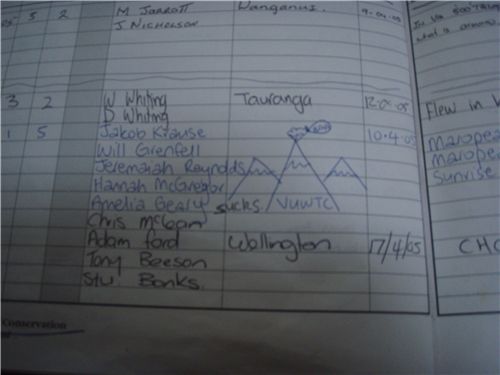 5 2 M Jarrott Wanganui. 9.04.05
J Nicholson
3 2 W Whiting Tauranga
D Whiting Flew in
1 5 Jakob Krause 10.4.05
Will Grenfell
Jeremaiah Reynolds
Hannah McGregor
Amelia Gealy sucks. VUWTC Sunrise
Chris McLean
Adam Ford Wellington 17/4/05 CHC
Tony Beeson
Stu. Bonks.
Conservation